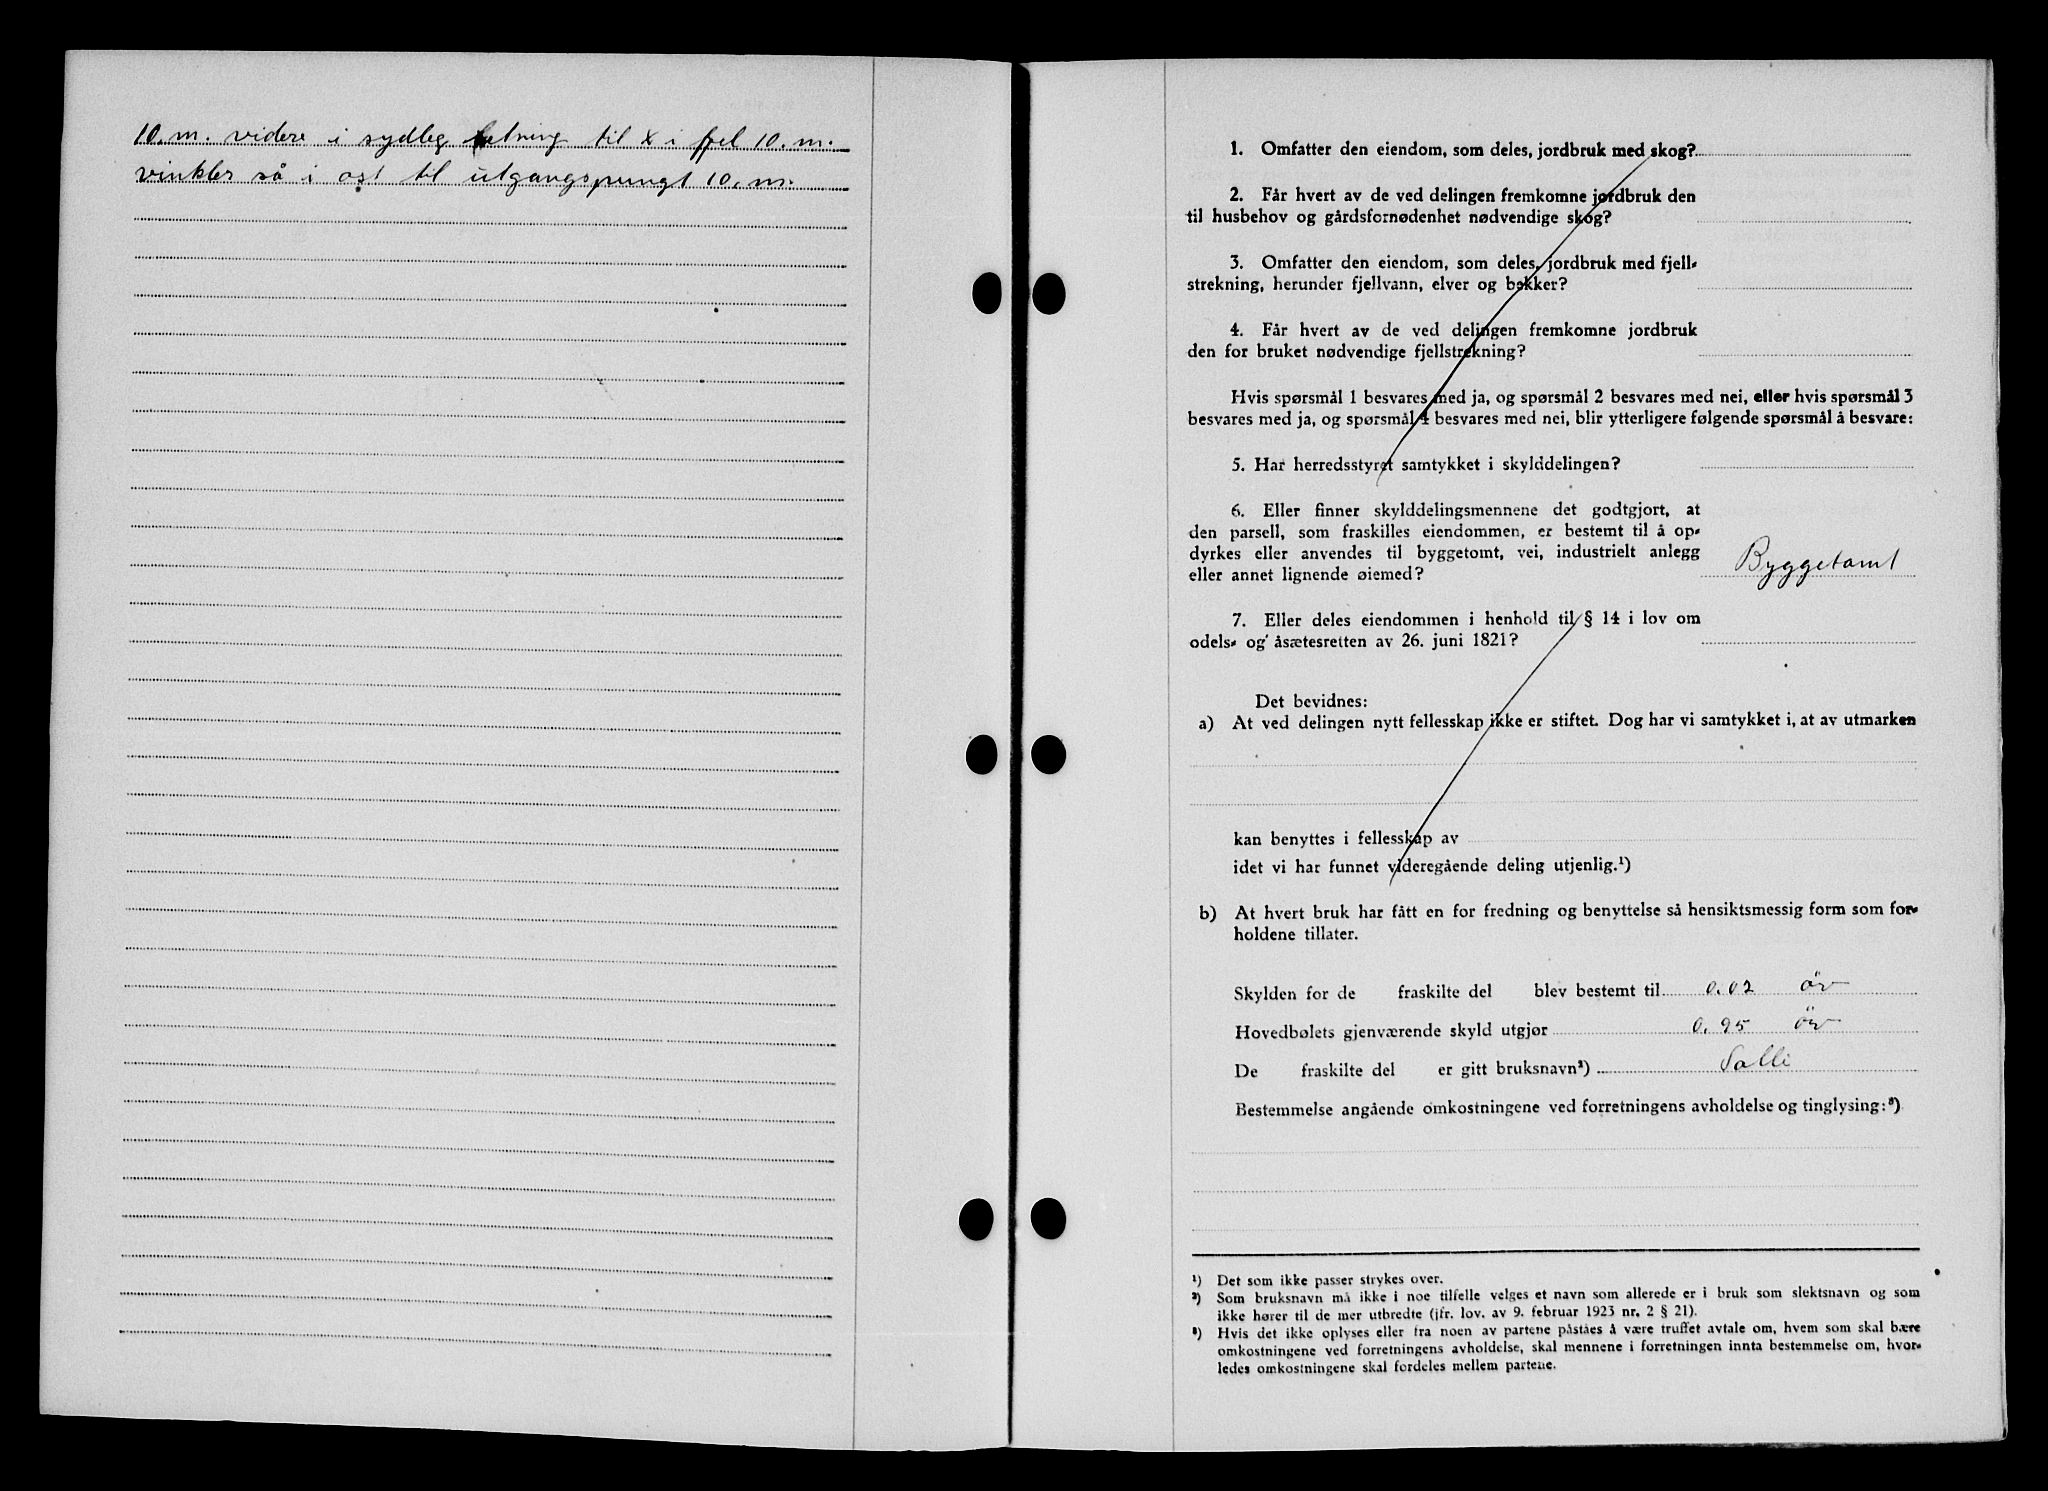 10.m. videre i sydleg retning til x i fjel 10.m.
vinkler så i øst til utgangspungt 10.m.
1. Omfatter den eiendom, som deles, jordbruk med skog?
2. Får hvert av de ved delingen fremkomne jordbruk den
til husbehov og gårdsfornødenhet nødvendige skog?
3. Omfatter den eiendom, som deles, jordbruk med fjell-
strekning, herunder fjellvann, elver og bekker?
4. Får hvert av de ved delingen fremkomne jordbruk
den for bruket nødvendige fjellstrekning?
Hvis spørsmål 1 besvares med ja, og spørsmål 2 besvares med nei, eller hvis spørsmål 3
besvares med ja, og spørsmål 4 besvares med nei, blir ytterligere følgende spørsmål å besvare:
5. Har herredsstyret samtykket i skylddelingen?
6. Eller finner skylddelingsmennene det godtgjort, at
den parsell, som fraskilles eiendommen, er bestemt til å op-
dyrkes eller anvendes til byggetomt, vei, industrielt anlegg
eller annet lignende øiemed? Byggetomt
7. Eller deles eiendommen i henhold til § 14 i lov om
odels- og åsætesretten av 26. juni 1821?
Det bevidnes:
a) At ved delingen nytt fellesskap ikke er stiftet. Dog har vi samtykket i, at av utmarken
kan benyttes i fellesskap av
idet vi har funnet videregående deling utjenlig.¹)
b) At hvert bruk har fått en for fredning og benyttelse så hensiktsmessig form som for-
holdene tillater.
Skylden for de fraskilte del blev bestemt til 0.02 ör
Hovedbølets gjenværende skyld utgjør 0.95 ör
De fraskilte del er gitt bruksnavn²) Solli
Bestemmelse angående omkostningene ved forretningens avholdelse og tinglysing:³)
¹) Det som ikke passer strykes over.
²) Som bruksnavn må ikke i noe tilfelle velges et navn som allerede er i bruk som slektsnavn og som
ikke hører til de mer utbredte (jfr. lov. av 9. februar 1923 nr. 2 § 21).
³) Hvis det ikke oplyses eller fra noen av partene påståes å være truffet avtale om, hvem som skal bære
omkostningene ved forretningens avholdelse, skal mennene i forretningen innta bestemmelse om, hvor-
ledes omkostningene skal fordeles mellem partene.